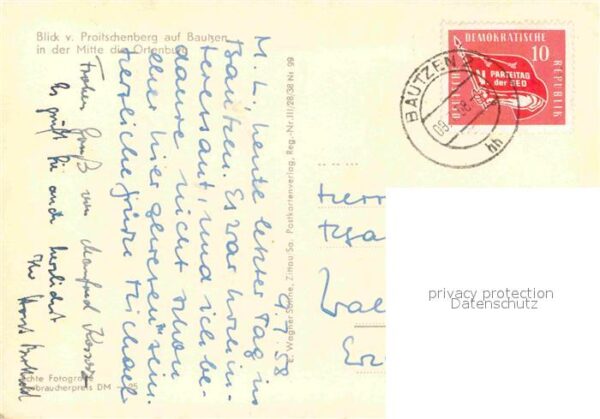 Blick v. Proitschenberg auf Bautzen
in der Mitte die Ortenburg
9.7.58
M. L. heute letzter Tag in
Bautzen. Es war hochin-
teressant, und ich be-
daure nicht schon
eher hier gewesen zu sein.
herzliche Grüße Michael
Frohen Gruß von Manfred
Es grüßt Sie auch herzlichst
Ihr Horst
E. Wagner Söhne, Zittau Sa. Postkartenverlag, Reg.-Nr. III/28/38 Nr. 99
Echte Fotografie
Verbraucherpreis DM -.25
DEUTSCHE DEMOKRATISCHE REPUBLIK
10
V. PARTEITAG
der SED
BAUTZEN 2
hh
Herrn
privacy protection
Datenschutz